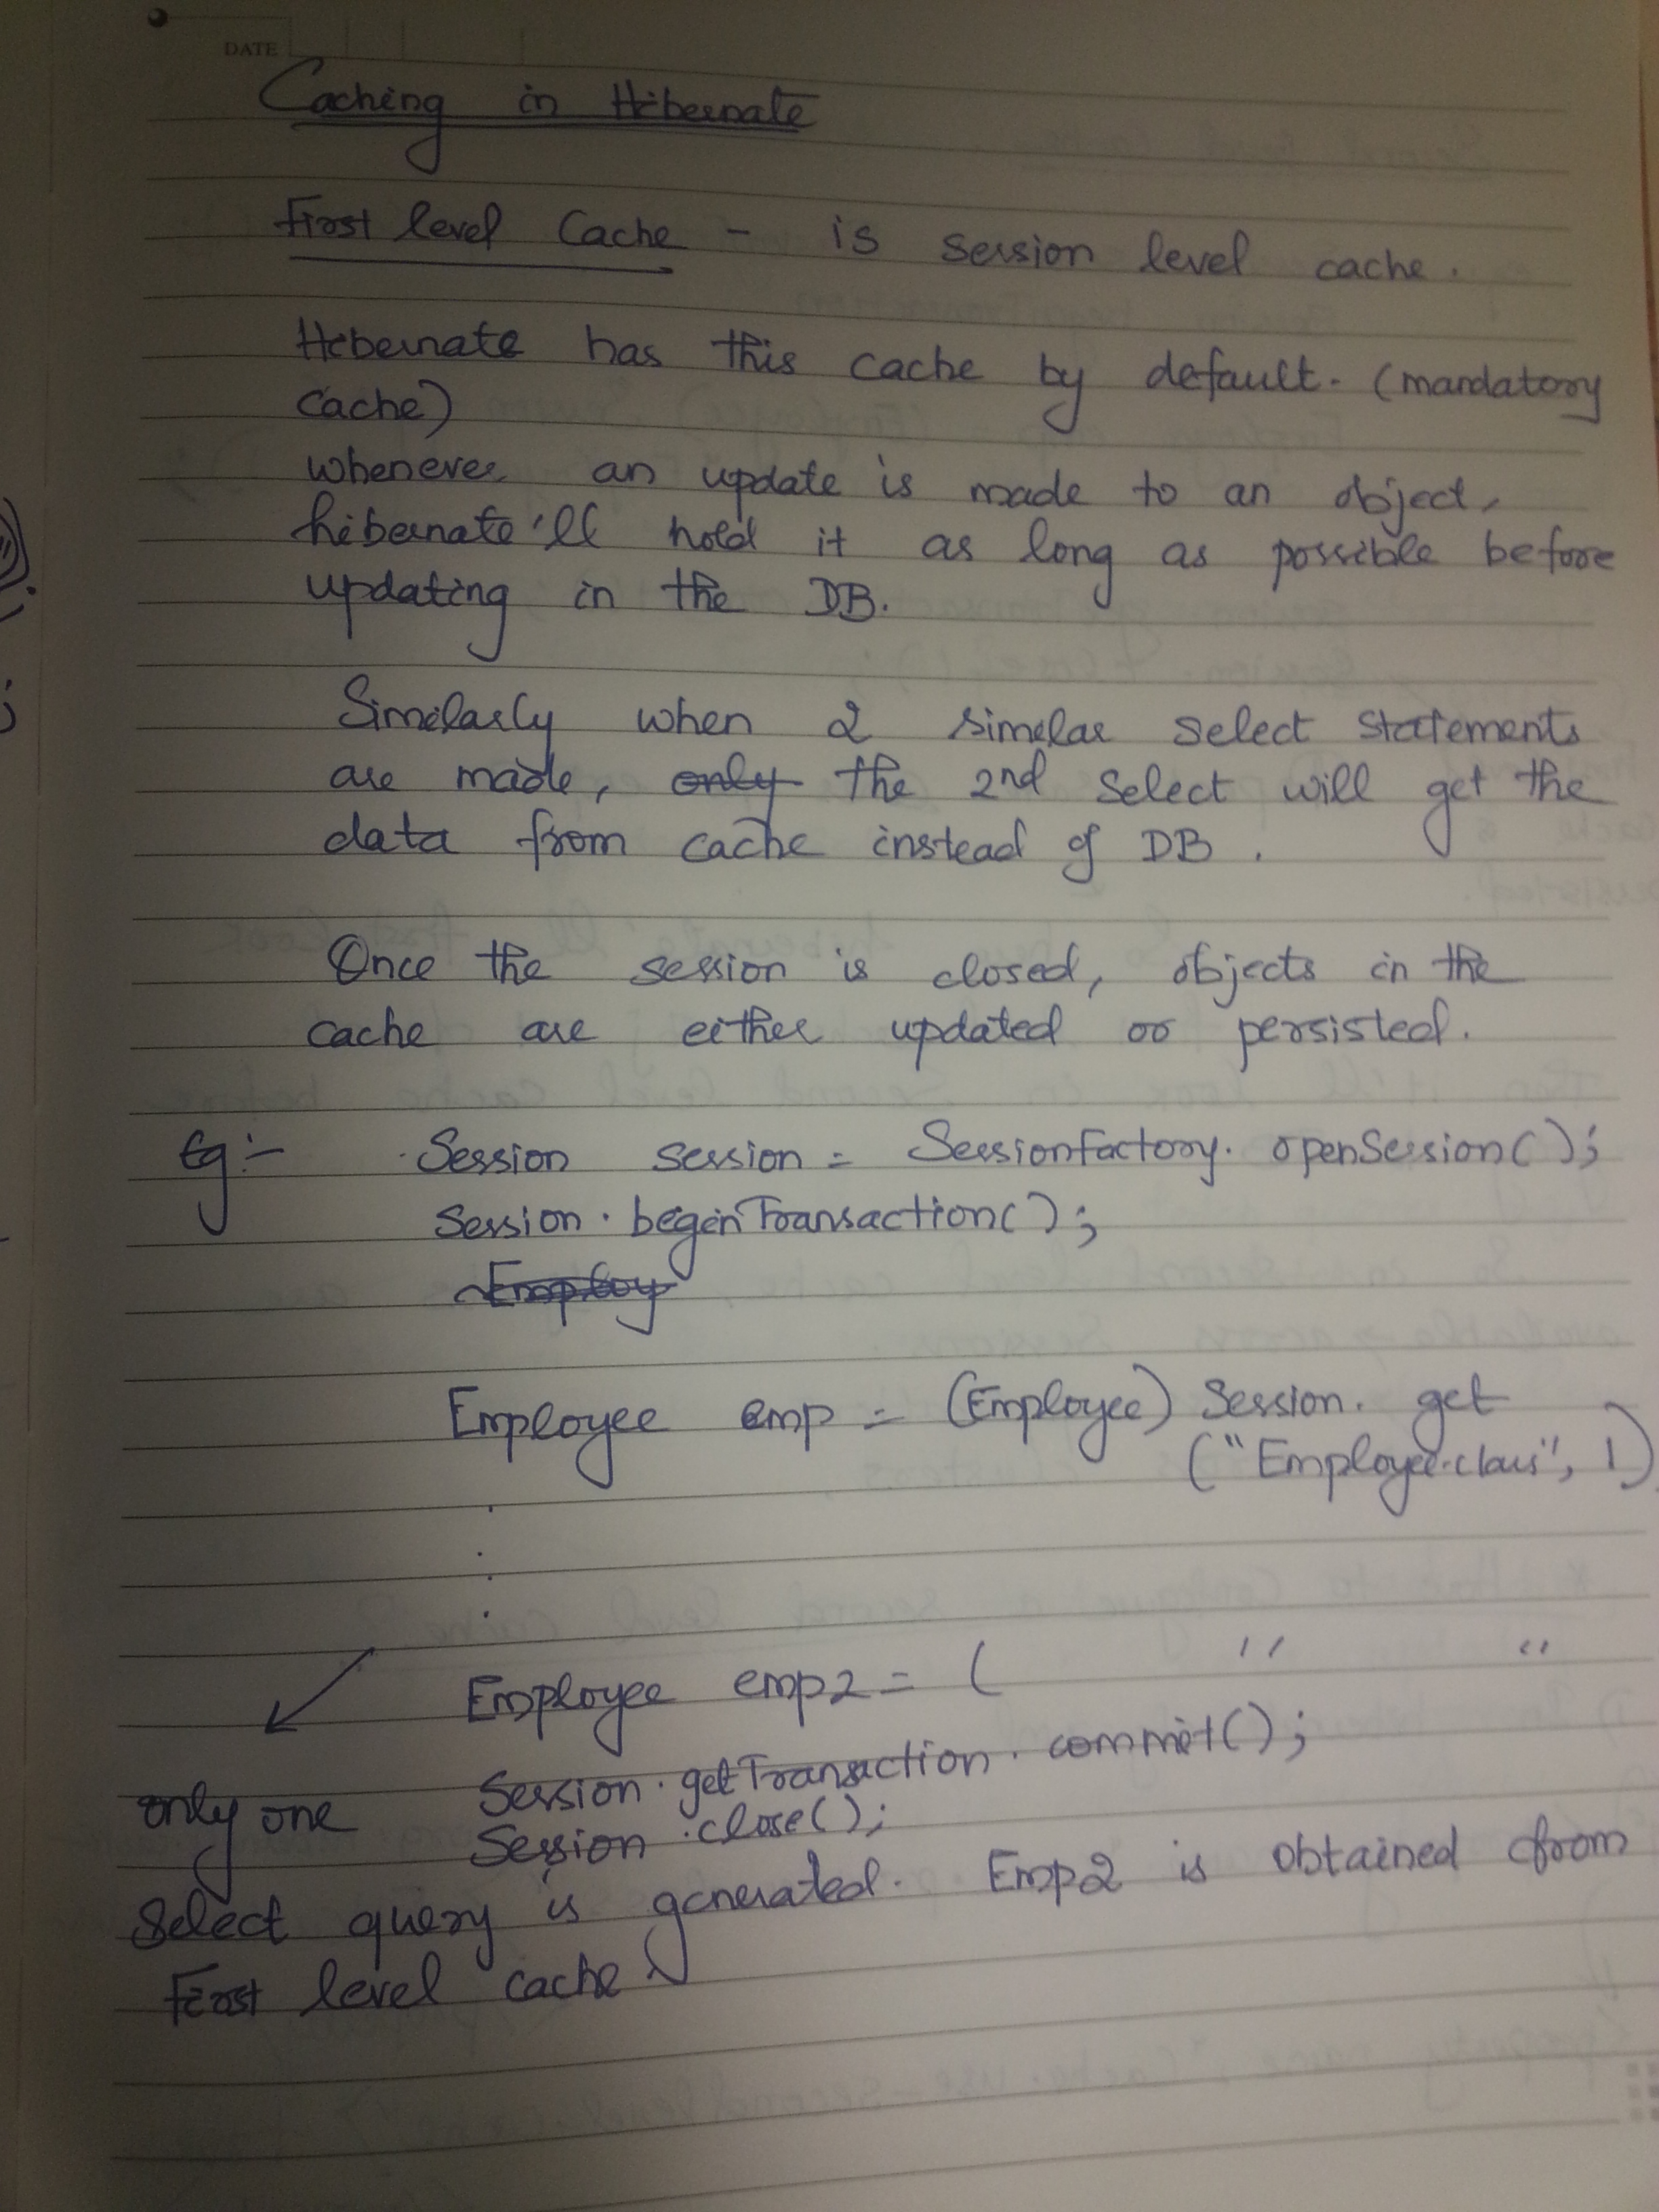 DATE
Caching in Hibernate
First level Cache - is session level cache.
Hibernate has this cache by default. (mandatory
cache)
whenever an update is made to an object,
hibernate'll hold it as long as possible before
updating in the DB.
Similarly when 2 similar select statements
are made, only the 2nd select will get the
data from cache instead of DB.
Once the session is closed, objects in the
cache are either updated or persisted.
Eg:- Session session = SessionFactory. openSession();
Session. beginTransaction();
Employ
Employee emp = (Employee) Session. get
("Employee.class", 1)
Employee emp2 = ( " "
Session. getTransaction. commit();
only one Session .close();
Select query is generated. Emp2 is obtained from
First level cache